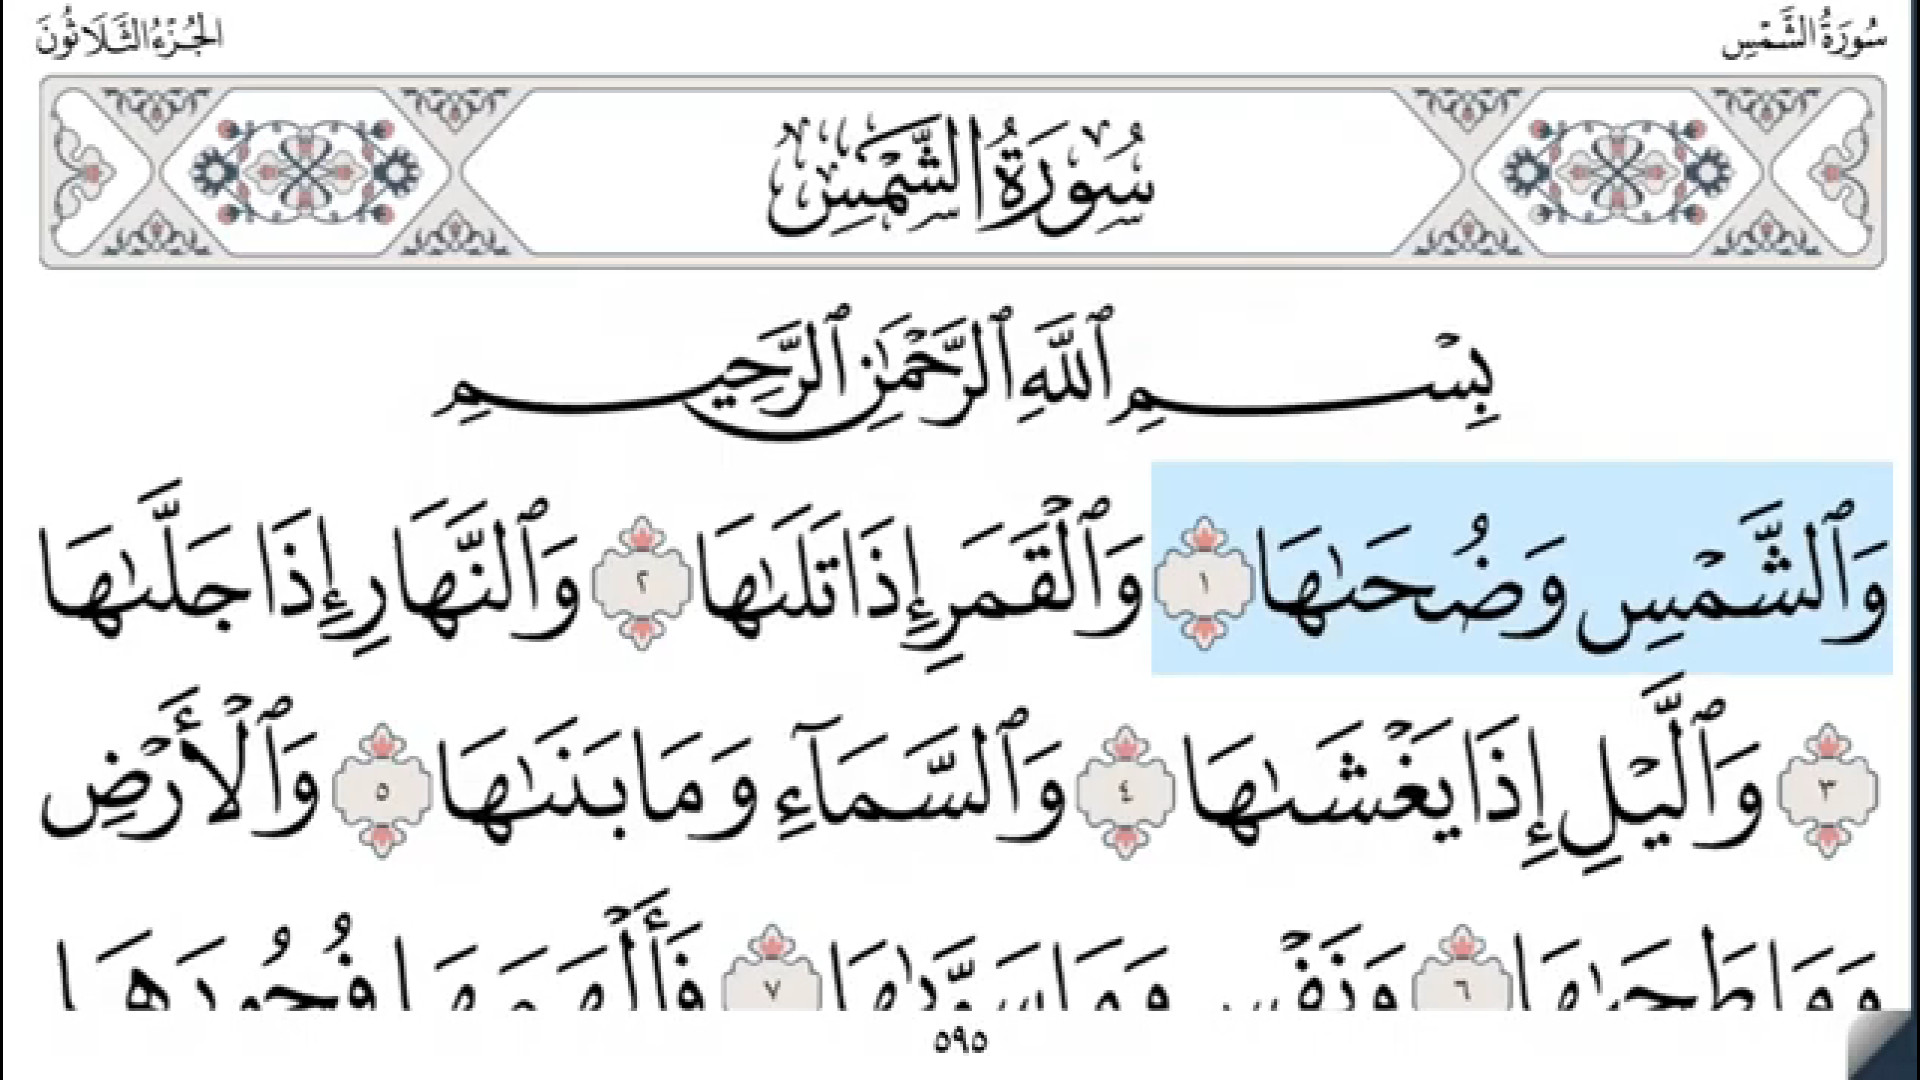 سُورَةُ الشَّمْسِ
الجُزْءُ الثَّلَاثُونَ
سُورَةُ الشَّمْسِ
بِسْمِ ٱللَّهِ ٱلرَّحْمَٰنِ ٱلرَّحِيمِ
وَٱلشَّمْسِ وَضُحَىٰهَا ١ وَٱلْقَمَرِ إِذَا تَلَىٰهَا ٢ وَٱلنَّهَارِ إِذَا جَلَّىٰهَا
٣ وَٱلَّيْلِ إِذَا يَغْشَىٰهَا ٤ وَٱلسَّمَآءِ وَمَا بَنَىٰهَا ٥ وَٱلْأَرْضِ
وَمَا طَحَىٰهَا ٦ وَنَفْسٍ وَمَا سَوَّىٰهَا ٧ فَأَلْهَمَهَا فُجُورَهَا
٥٩٥